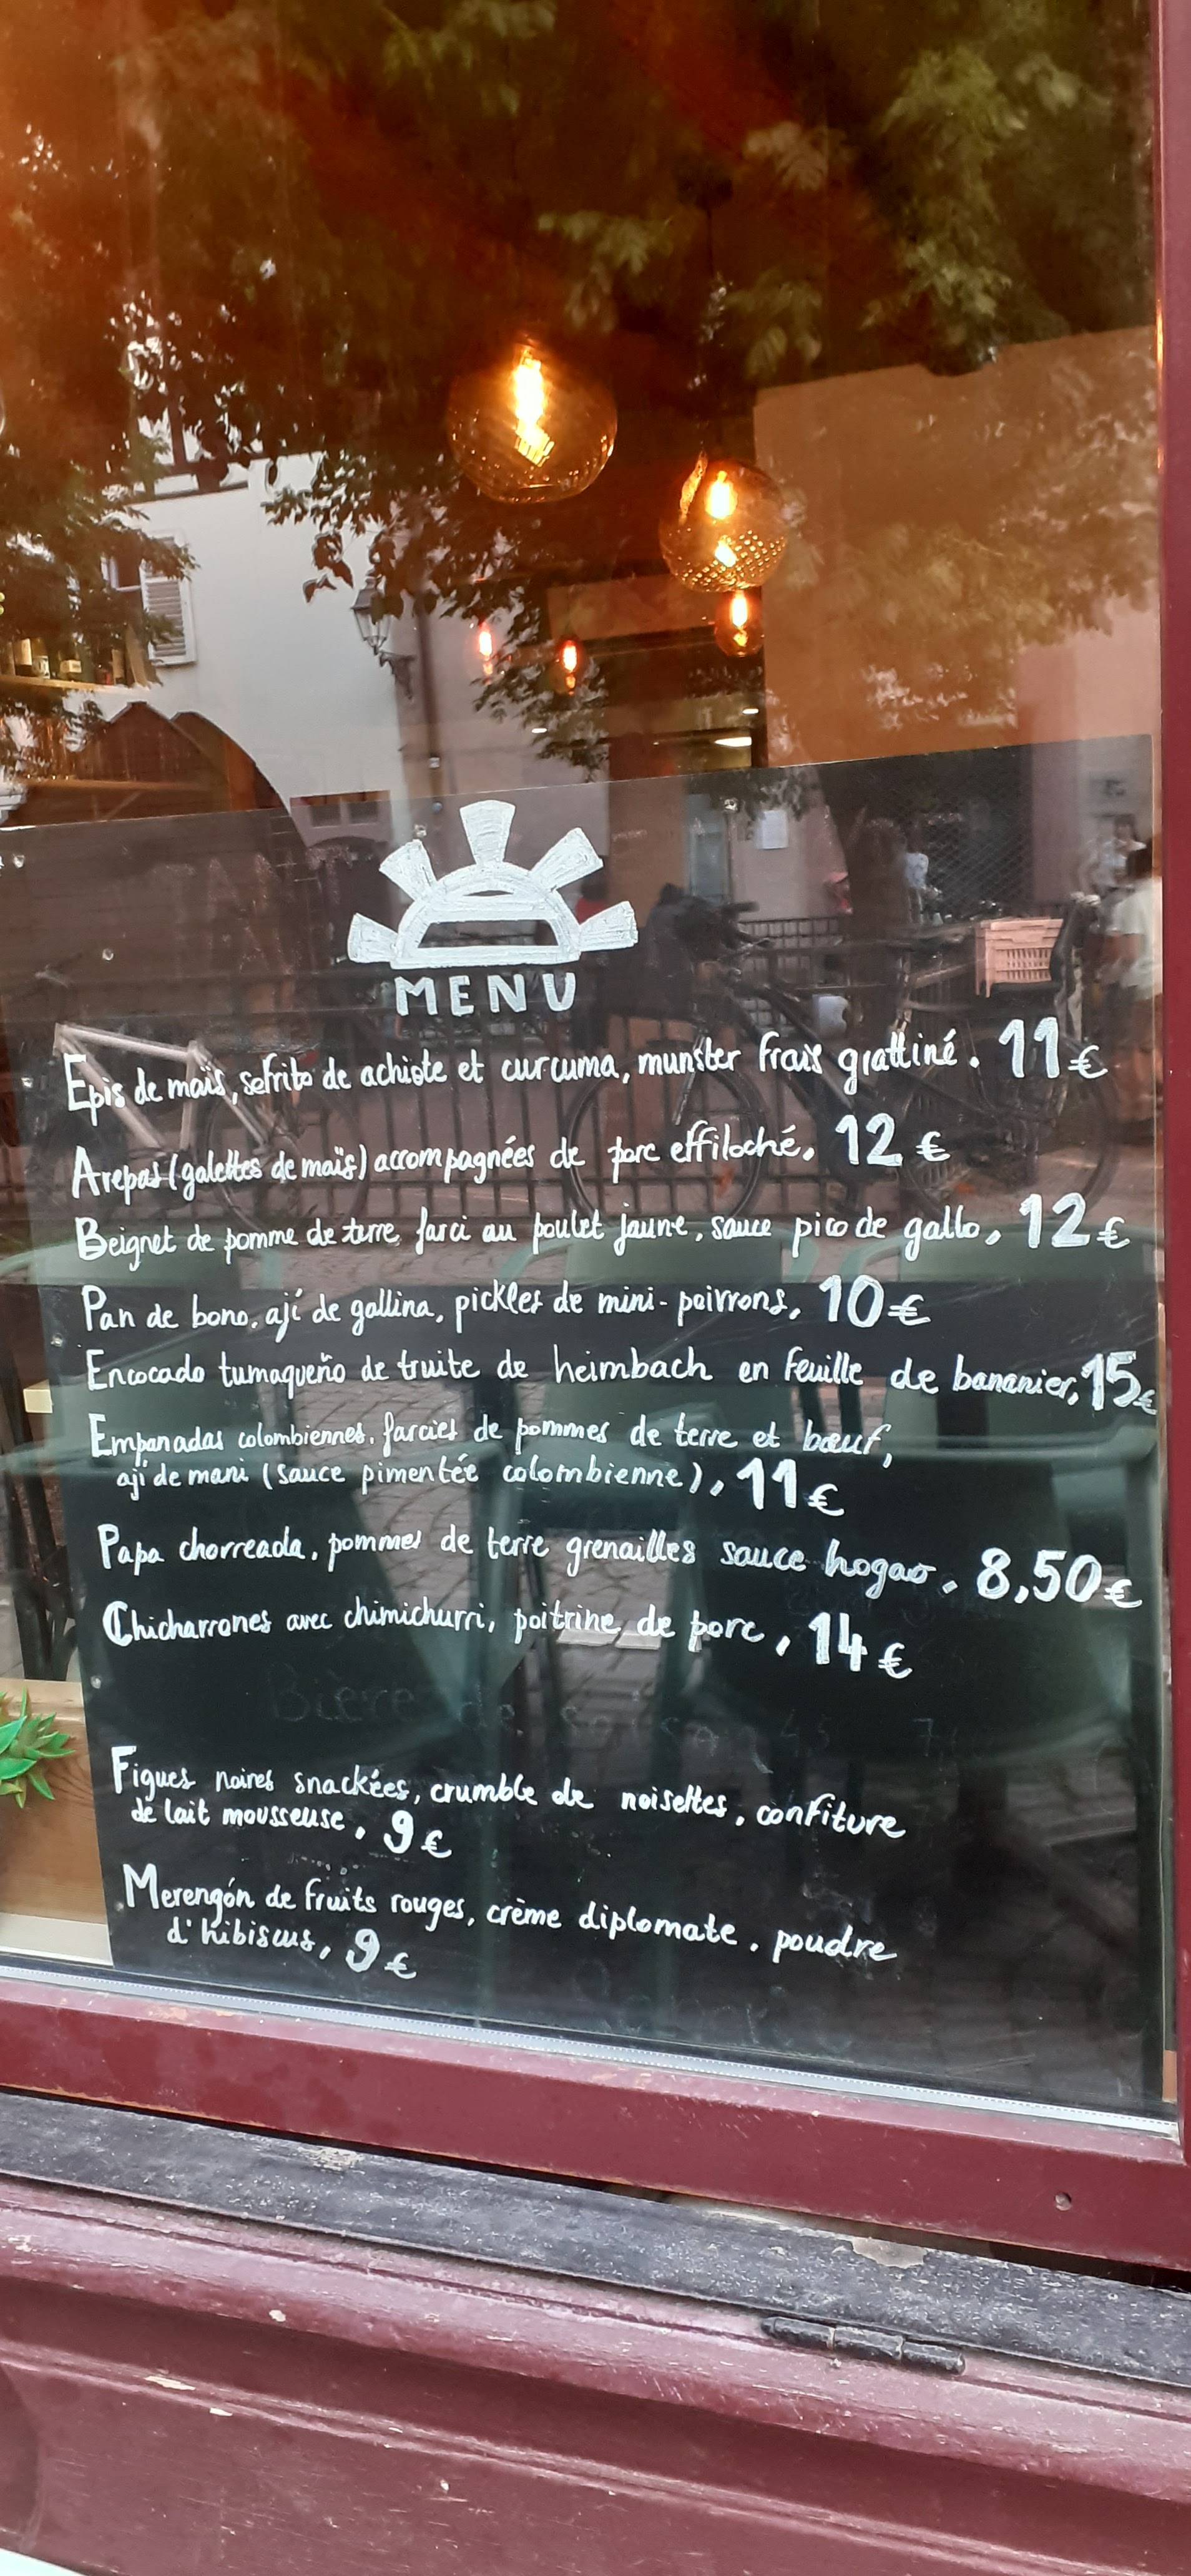 MENU
Epis de maïs, sofrito de achiote et curcuma, munster frais grattiné. 11€
Arepas (galettes de maïs) accompagnées de porc effiloché. 12€
Beignet de pomme de terre farci au poulet jaune, sauce pico de gallo, 12€
Pan de bono, ají de gallina, pickles de mini-poivrons, 10€
Encocado tumaqueño de truite de heimbach en feuille de bananier, 15€
Empanadas colombiennes, farcies de pommes de terre et bœuf,
ají de mani (sauce pimentée colombienne), 11€
Papa chorreada, pommes de terre grenailles sauce hogao, 8,50€
Chicharrones avec chimichurri, poitrine de porc, 14€
Bière de saison
Figues noires snackées, crumble de noisettes, confiture
de lait mousseuse, 9€
Merengón de fruits rouges, crème diplomate, poudre
d'hibiscus, 9€